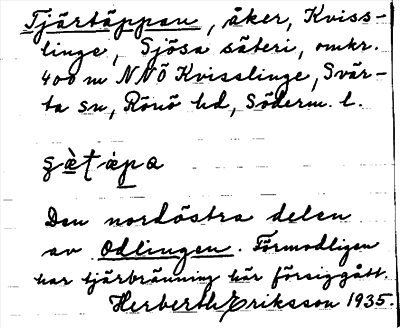 Tjärtäppan, åker, Kviss-
linge, Sjösa säteri, omkr.
400 m NNÖ Kvisslinge, Svär-
ta sn, Rönö hd, Söderm. l.
Den nordöstra delen
av Odlingen. Förmodligen
har tjärbränning här försiggått.
Herberth Eriksson 1935.